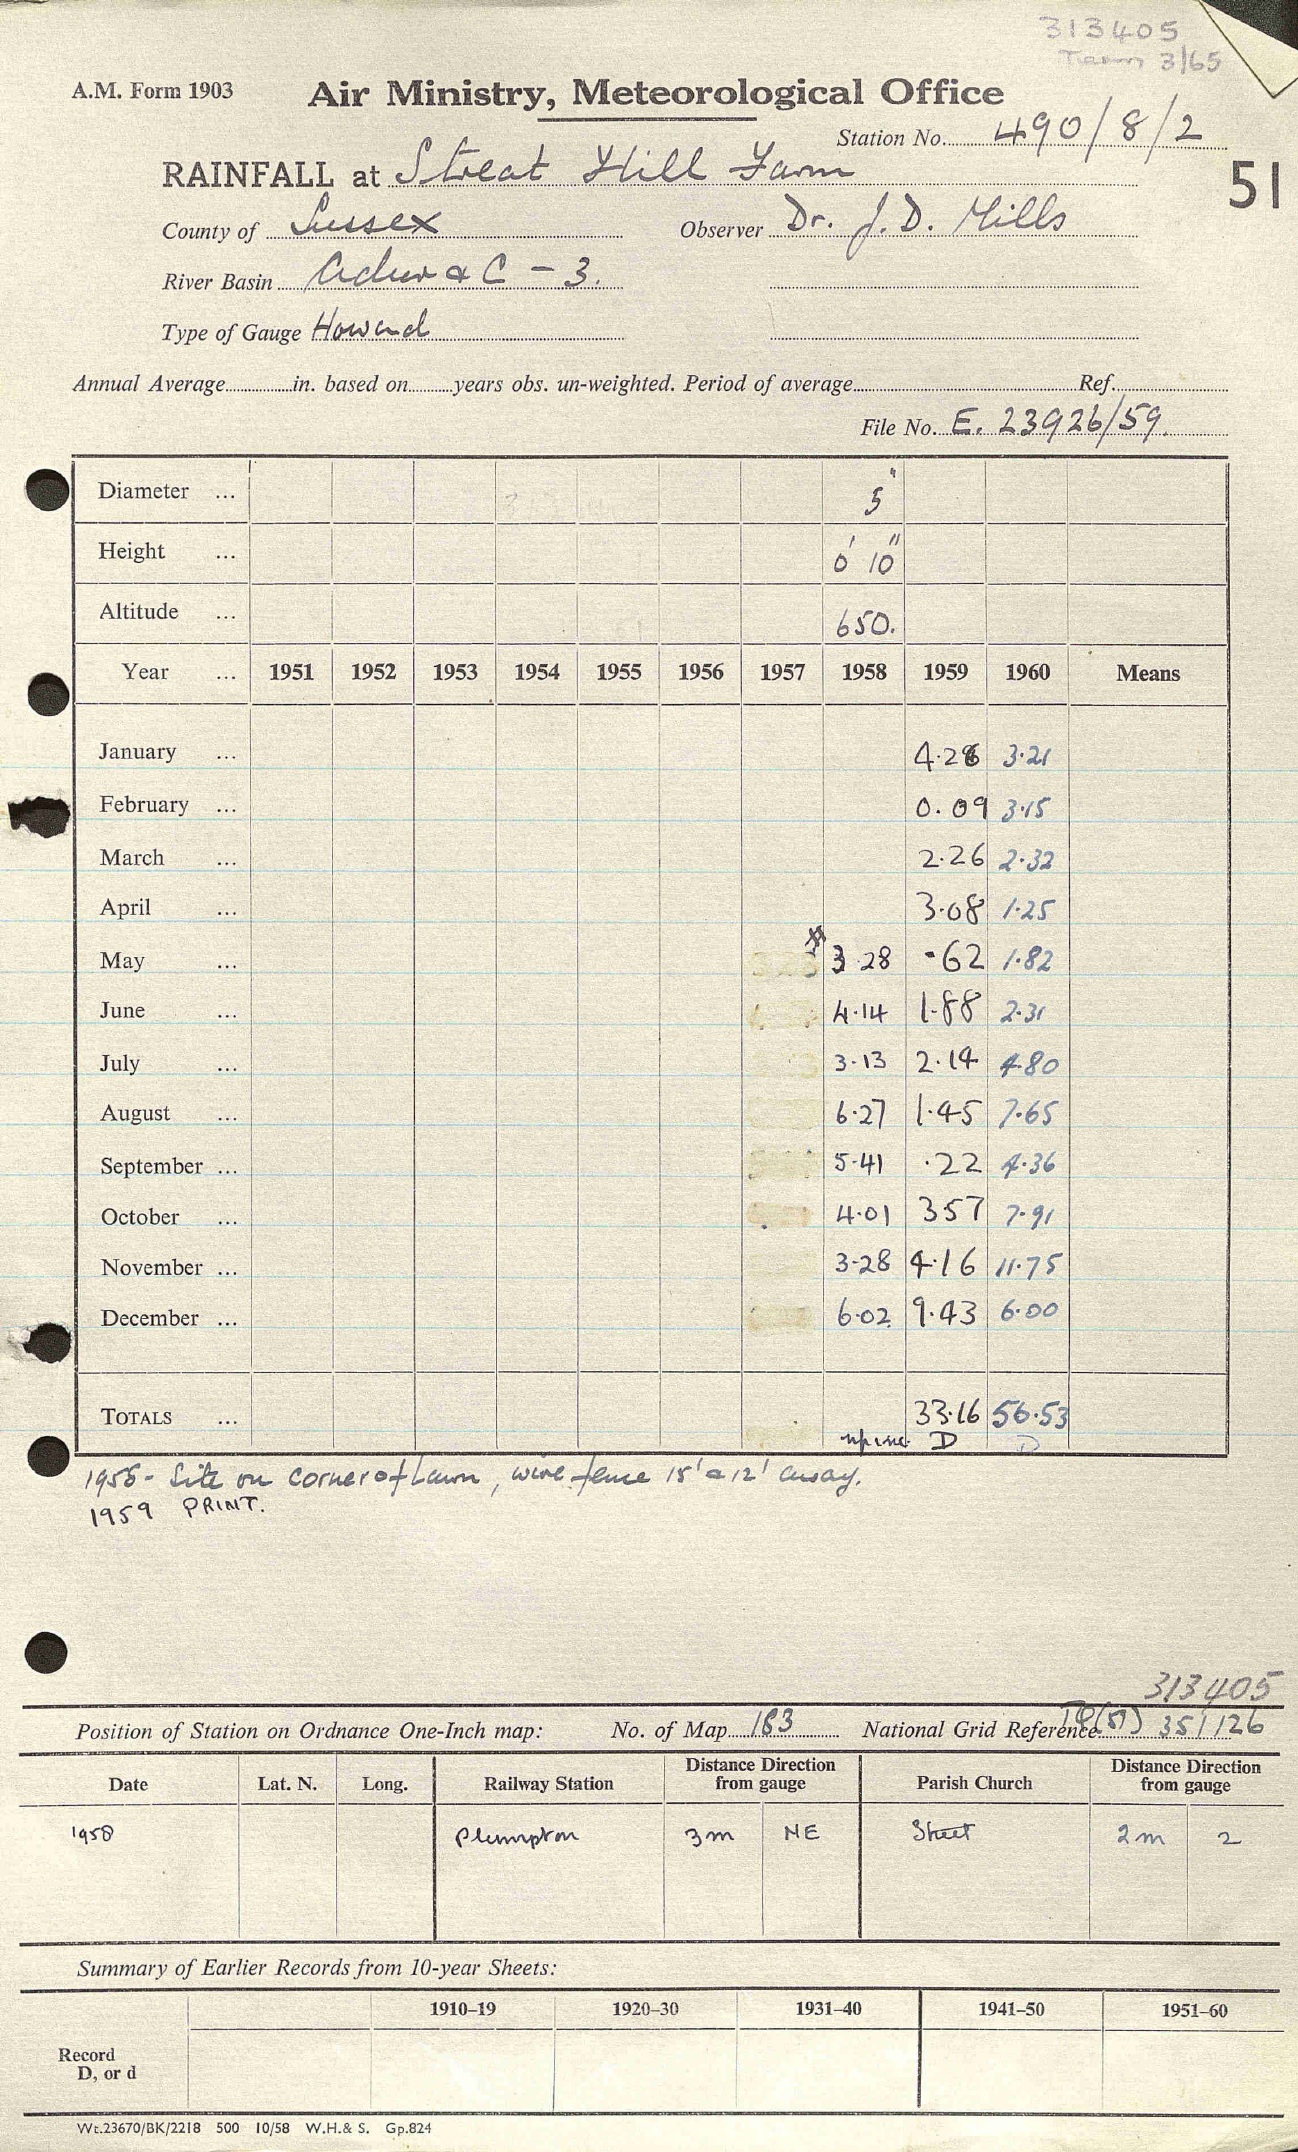 313405
3/65
A.M. Form 1903 Air Ministry, Meteorological Office
Station No. 490/8/2
51
RAINFALL at Streat Hill Farm
County of Sussex Observer Dr. J. D. Mills
River Basin Adur & C - 3.
Type of Gauge Howard
Annual Average in. based on years obs. un-weighted. Period of average Ref.
File No. E. 23926/59.
Diameter ... 5"
Height ... 0' 10"
Altitude ... 650.
Year ... 1951 1952 1953 1954 1955 1956 1957 1958 1959 1960 Means
January ... 4.26 3.21
February ... 0.09 3.15
March ... 2.26 2.32
April ... 3.08 1.25
May ... 3.28 .62 1.82
June ... 4.14 1.88 2.31
July ... 3.13 2.14 4.80
August ... 6.27 1.45 7.65
September ... 5.41 .22 4.36
October ... 4.01 3.57 7.91
November ... 3.28 4.16 11.75
December ... 6.02 9.43 6.00
TOTALS ... 33.16 56.53
D D
1958 - Site on corner of Lawn, wire fence 15' & 12' away.
1959 PRINT.
313405
Position of Station on Ordnance One-Inch map: No. of Map 183 National Grid Reference TQ(51) 351126
Date Lat. N. Long. Railway Station Distance Direction from gauge Parish Church Distance Direction from gauge
1958 Plumpton 3m NE Street 2m 2
Summary of Earlier Records from 10-year Sheets:
1910–19 1920–30 1931–40 1941–50 1951–60
Record
D, or d
Wt.23670/BK/2218 500 10/58 W.H.& S. Gp.824